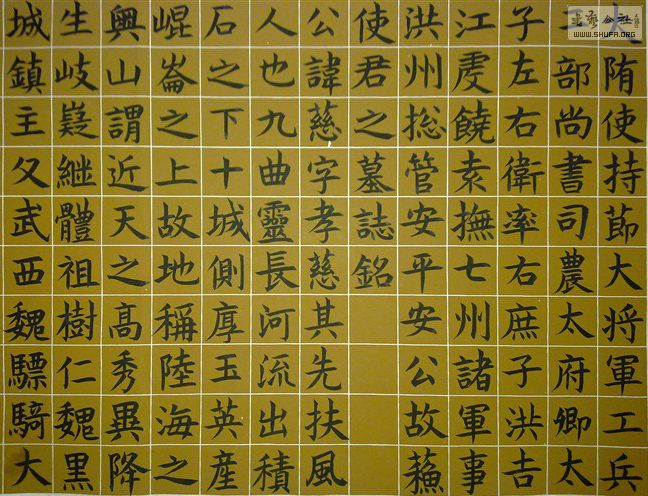 大隋使持節大将軍工兵
二部尚書司農太府卿太
子左右衛率右庶子洪吉
江虔饒袁撫七州諸軍事
洪州揔管安平安公故蘓
使君之墓誌銘
公諱慈字孝慈其先扶風
人也九曲靈長河流出積
石之下十城側厚玉英産
崐崙之上故地稱陸海之
興山謂近天之高秀畢降
生岐嶷継體祖樹仁魏黒
城鎮主父武西魏驃騎大
書藝公社
WWW.SHUFA.ORG